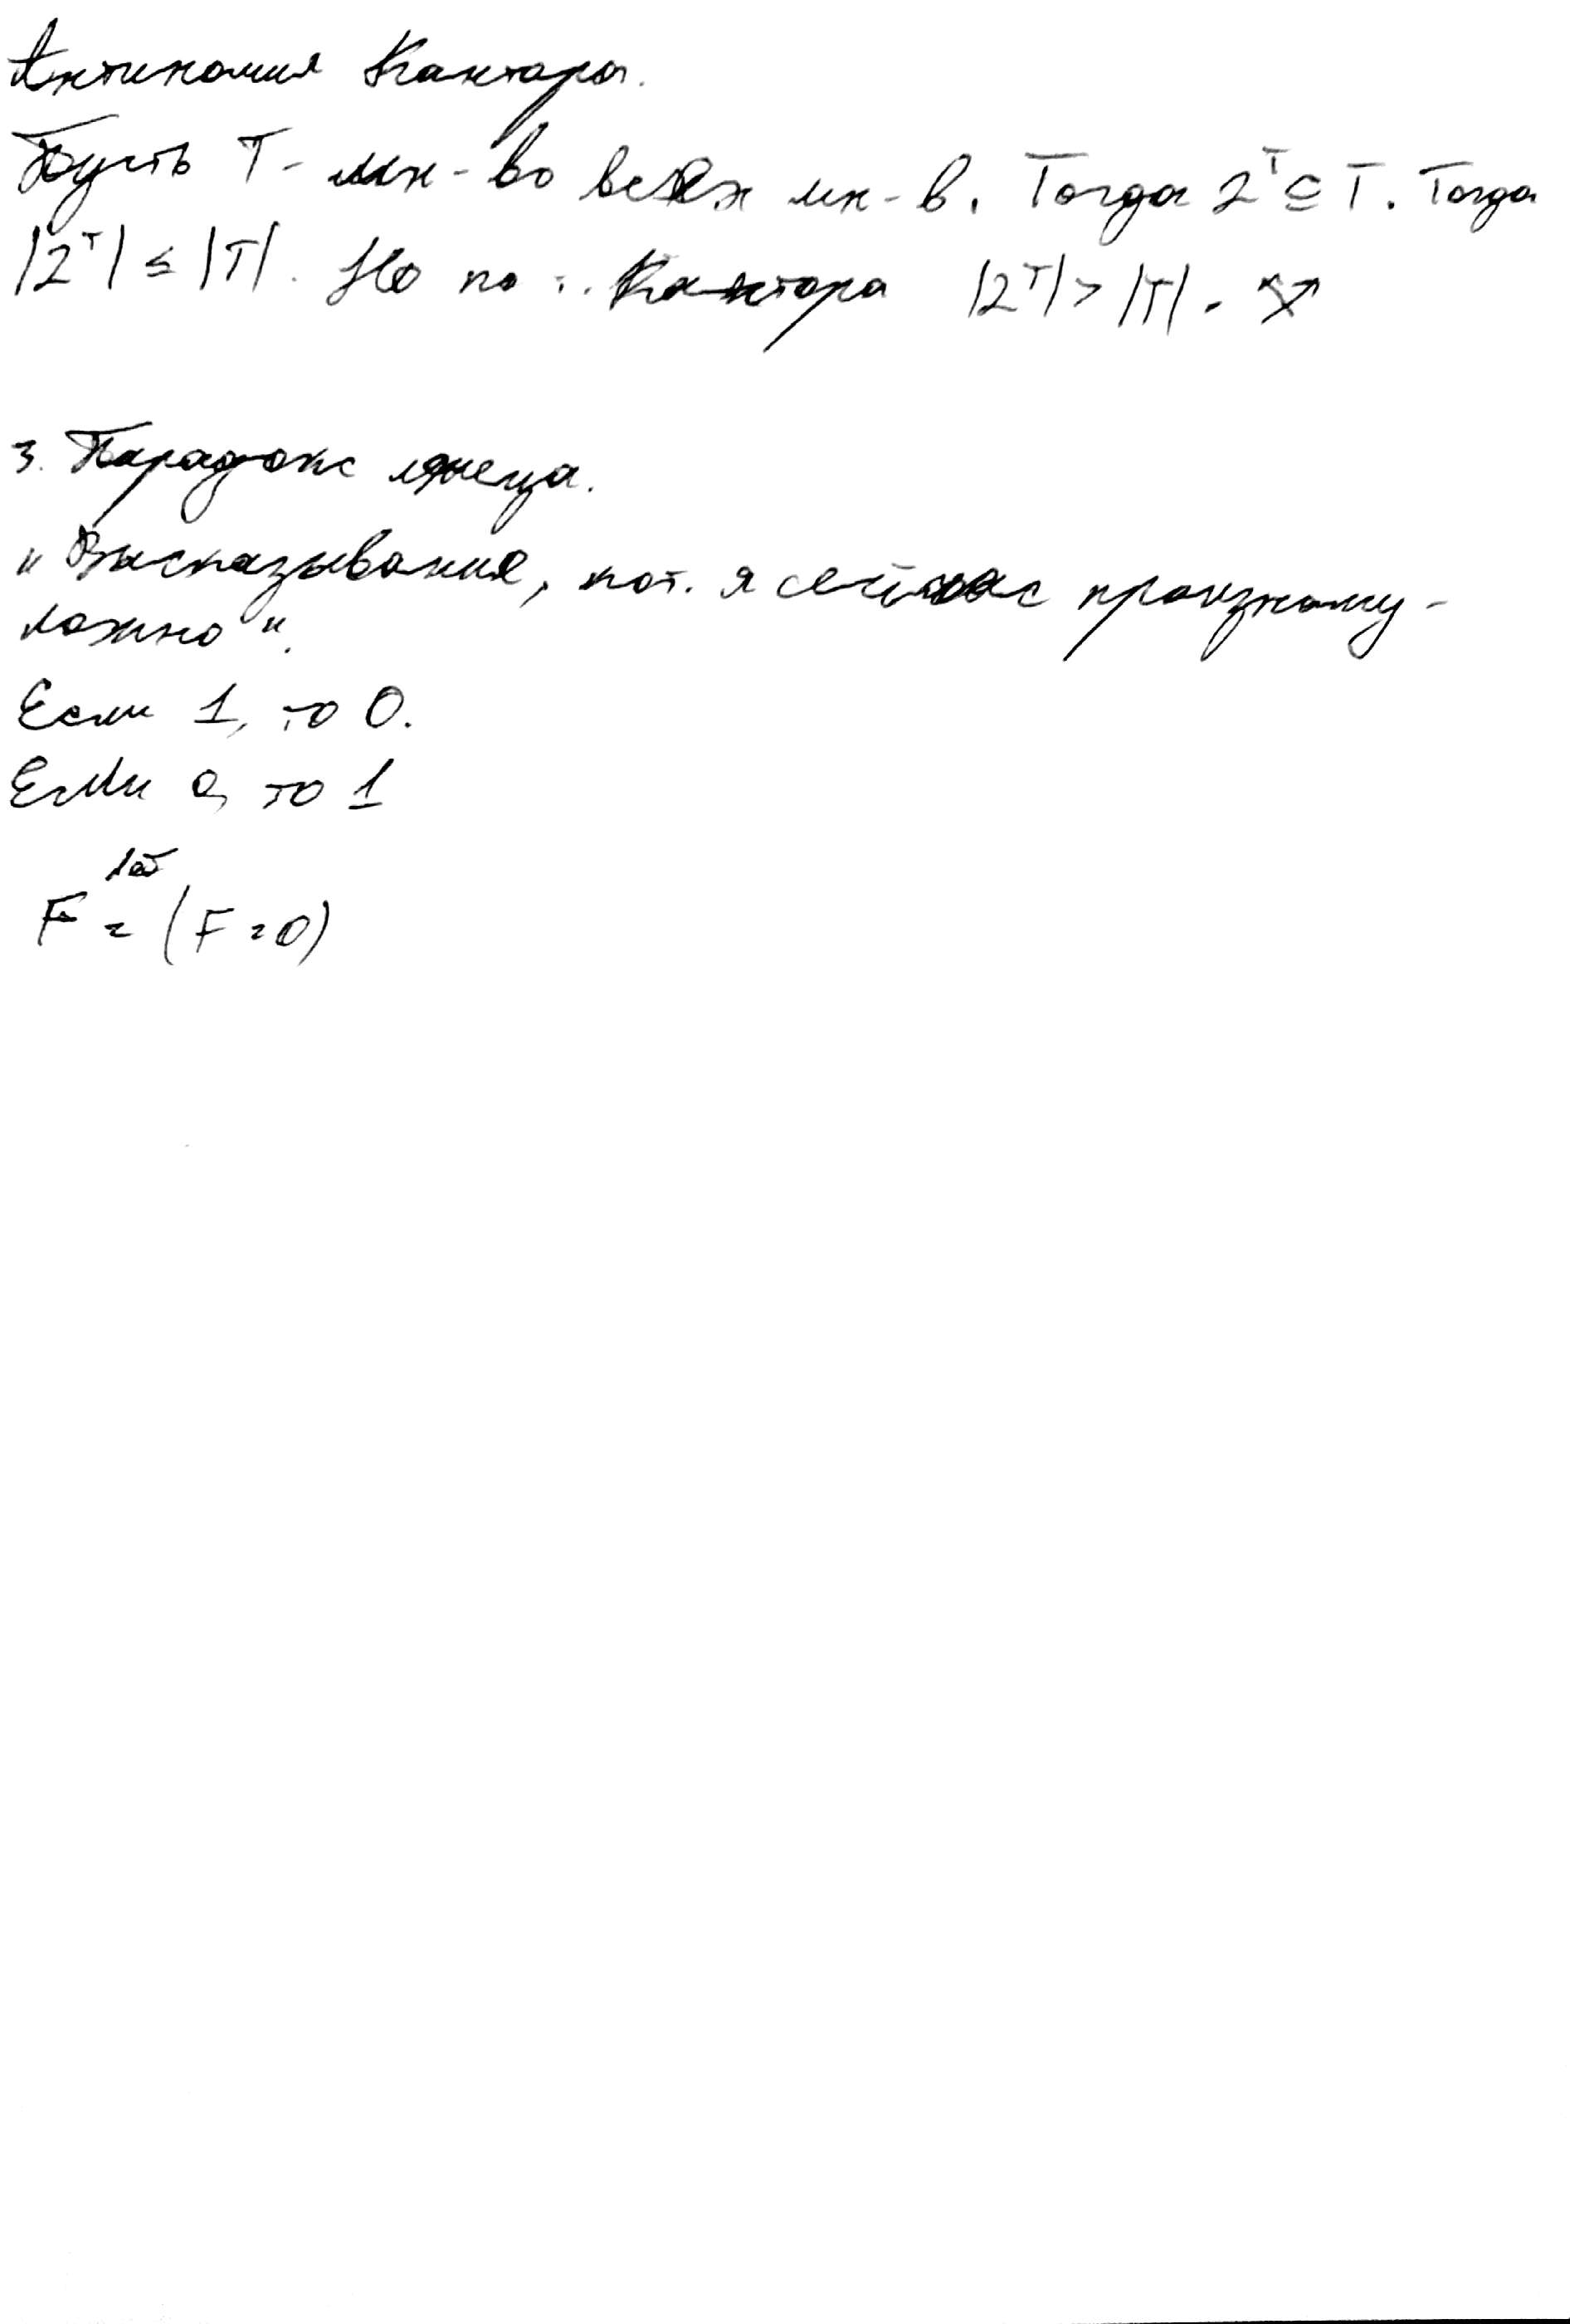 Антиномия Кантора.
Пусть T - мн-во всех мн-в. Тогда 2^T ⊆ T. Тогда
|2^T| ≤ |T|. Но по т. Кантора |2^T| > |T|.
3. Парадокс лжеца.
"Высказывание, кот. я сейчас произношу -
ложно".
Если 1, то 0.
Если 0, то 1
F = (F = 0)